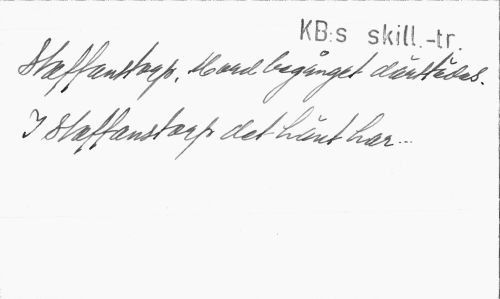 KB:s skill.-tr.
Staffanstorp. Mord begånget därstädes.
I Staffanstorp det hänt har...